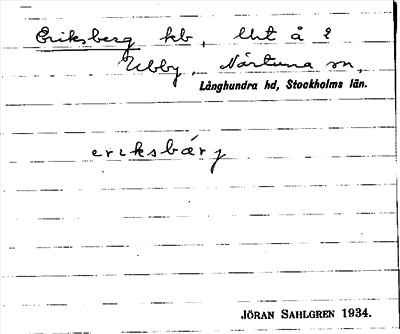 Eriksberg kb, Utt å ?
Ubby, Närtuna sn,
Långhundra hd, Stockholms län.
eriksbærj
JÖRAN SAHLGREN 1934.